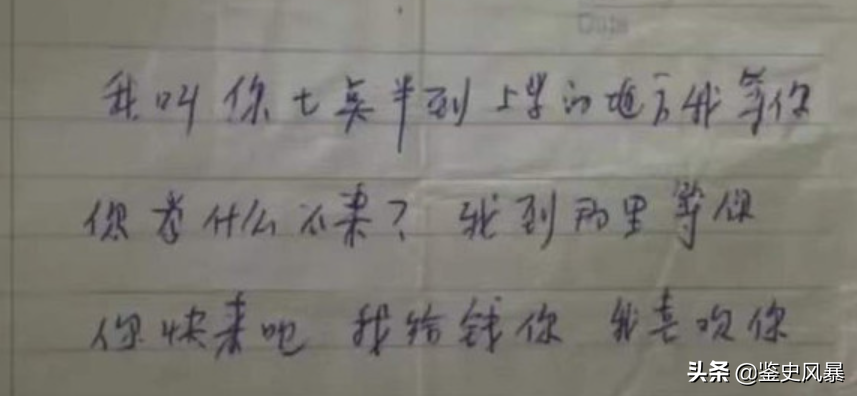 Date
我叫你七点半到上学的地方我等你
你为什么不来？我到那里等你
你快来吧 我给钱你 我喜欢你
头条 @鉴史风暴